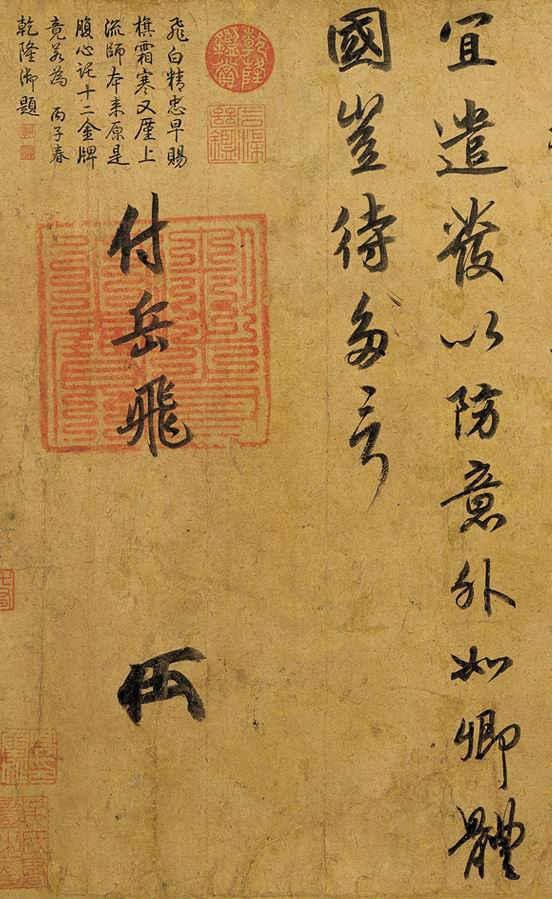 宜遣發以防意外如卿體
國豈待多言
付岳飛
飛白精忠早賜
旗霜寒又厪上
流師本来原是
腹心託十二金牌
竟若為 丙子春
乾隆御題
乾隆鑑賞